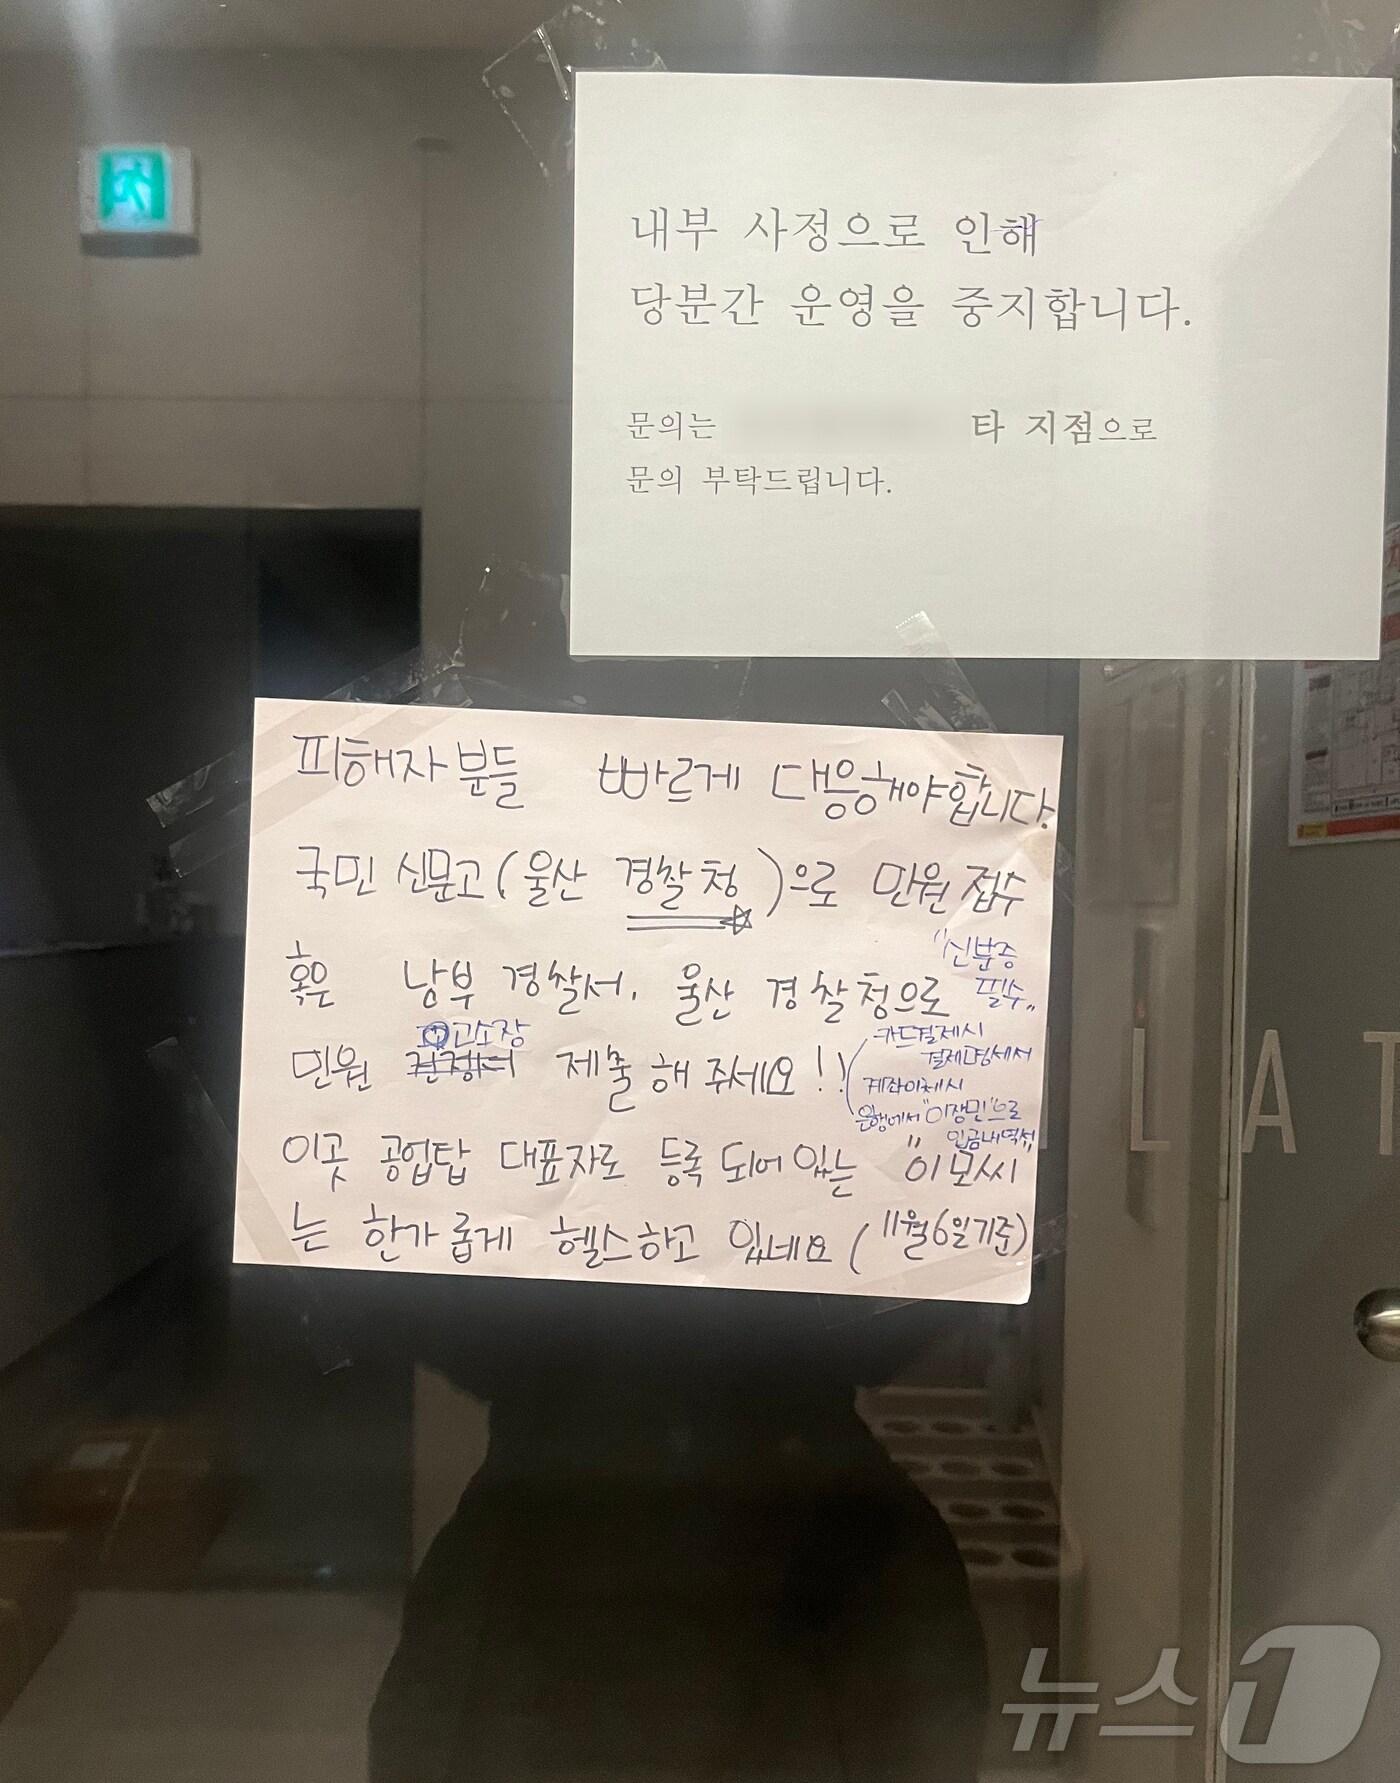 내부 사정으로 인해
당분간 운영을 중지합니다.
문의는 타 지점으로
문의 부탁드립니다.
피해자분들 빠르게 대응해야합니다.
국민 신문고(울산 경찰청)으로 민원 접수
혹은 남부 경찰서, 울산 경찰청으로
"신분증
필수"
고소장
민원 제출해 주세요!!
(카드결제시
결제명세서
계좌이체시
은행에서 "이장민"으로
입금내역서
이곳 공업탑 대표자로 등록 되어있는 "이모씨"
는 한가롭게 헬스하고 있네요 (11월6일기준)
LAT
뉴스1